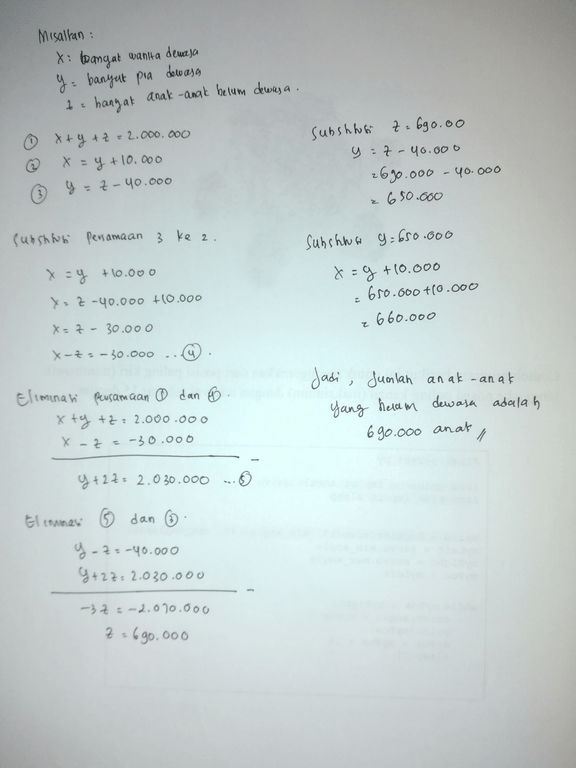 Misalkan :
x : banyak wanita dewasa
y = banyak pria dewasa
z = banyak anak-anak belum dewasa.
① x + y + z = 2.000.000
② x = y + 10.000
③ y = z - 40.000
Substitusi Persamaan 3 ke 2.
x = y + 10.000
x = z - 40.000 + 10.000
x = z - 30.000
x - z = -30.000 ...④.
Eliminasi persamaan ① dan ④.
x + y + z = 2.000.000
x - z = -30.000
y + 2z = 2.030.000 ...⑤
Eliminasi ⑤ dan ③.
y - z = -40.000
y + 2z = 2.030.000
-3z = -2.070.000
z = 690.000
Substitusi z = 690.00
y = z - 40.000
= 690.000 - 40.000
= 650.000
Substitusi y = 650.000
x = y + 10.000
= 650.000 + 10.000
= 660.000
Jadi, Jumlah anak-anak
yang belum dewasa adalah
690.000 anak //